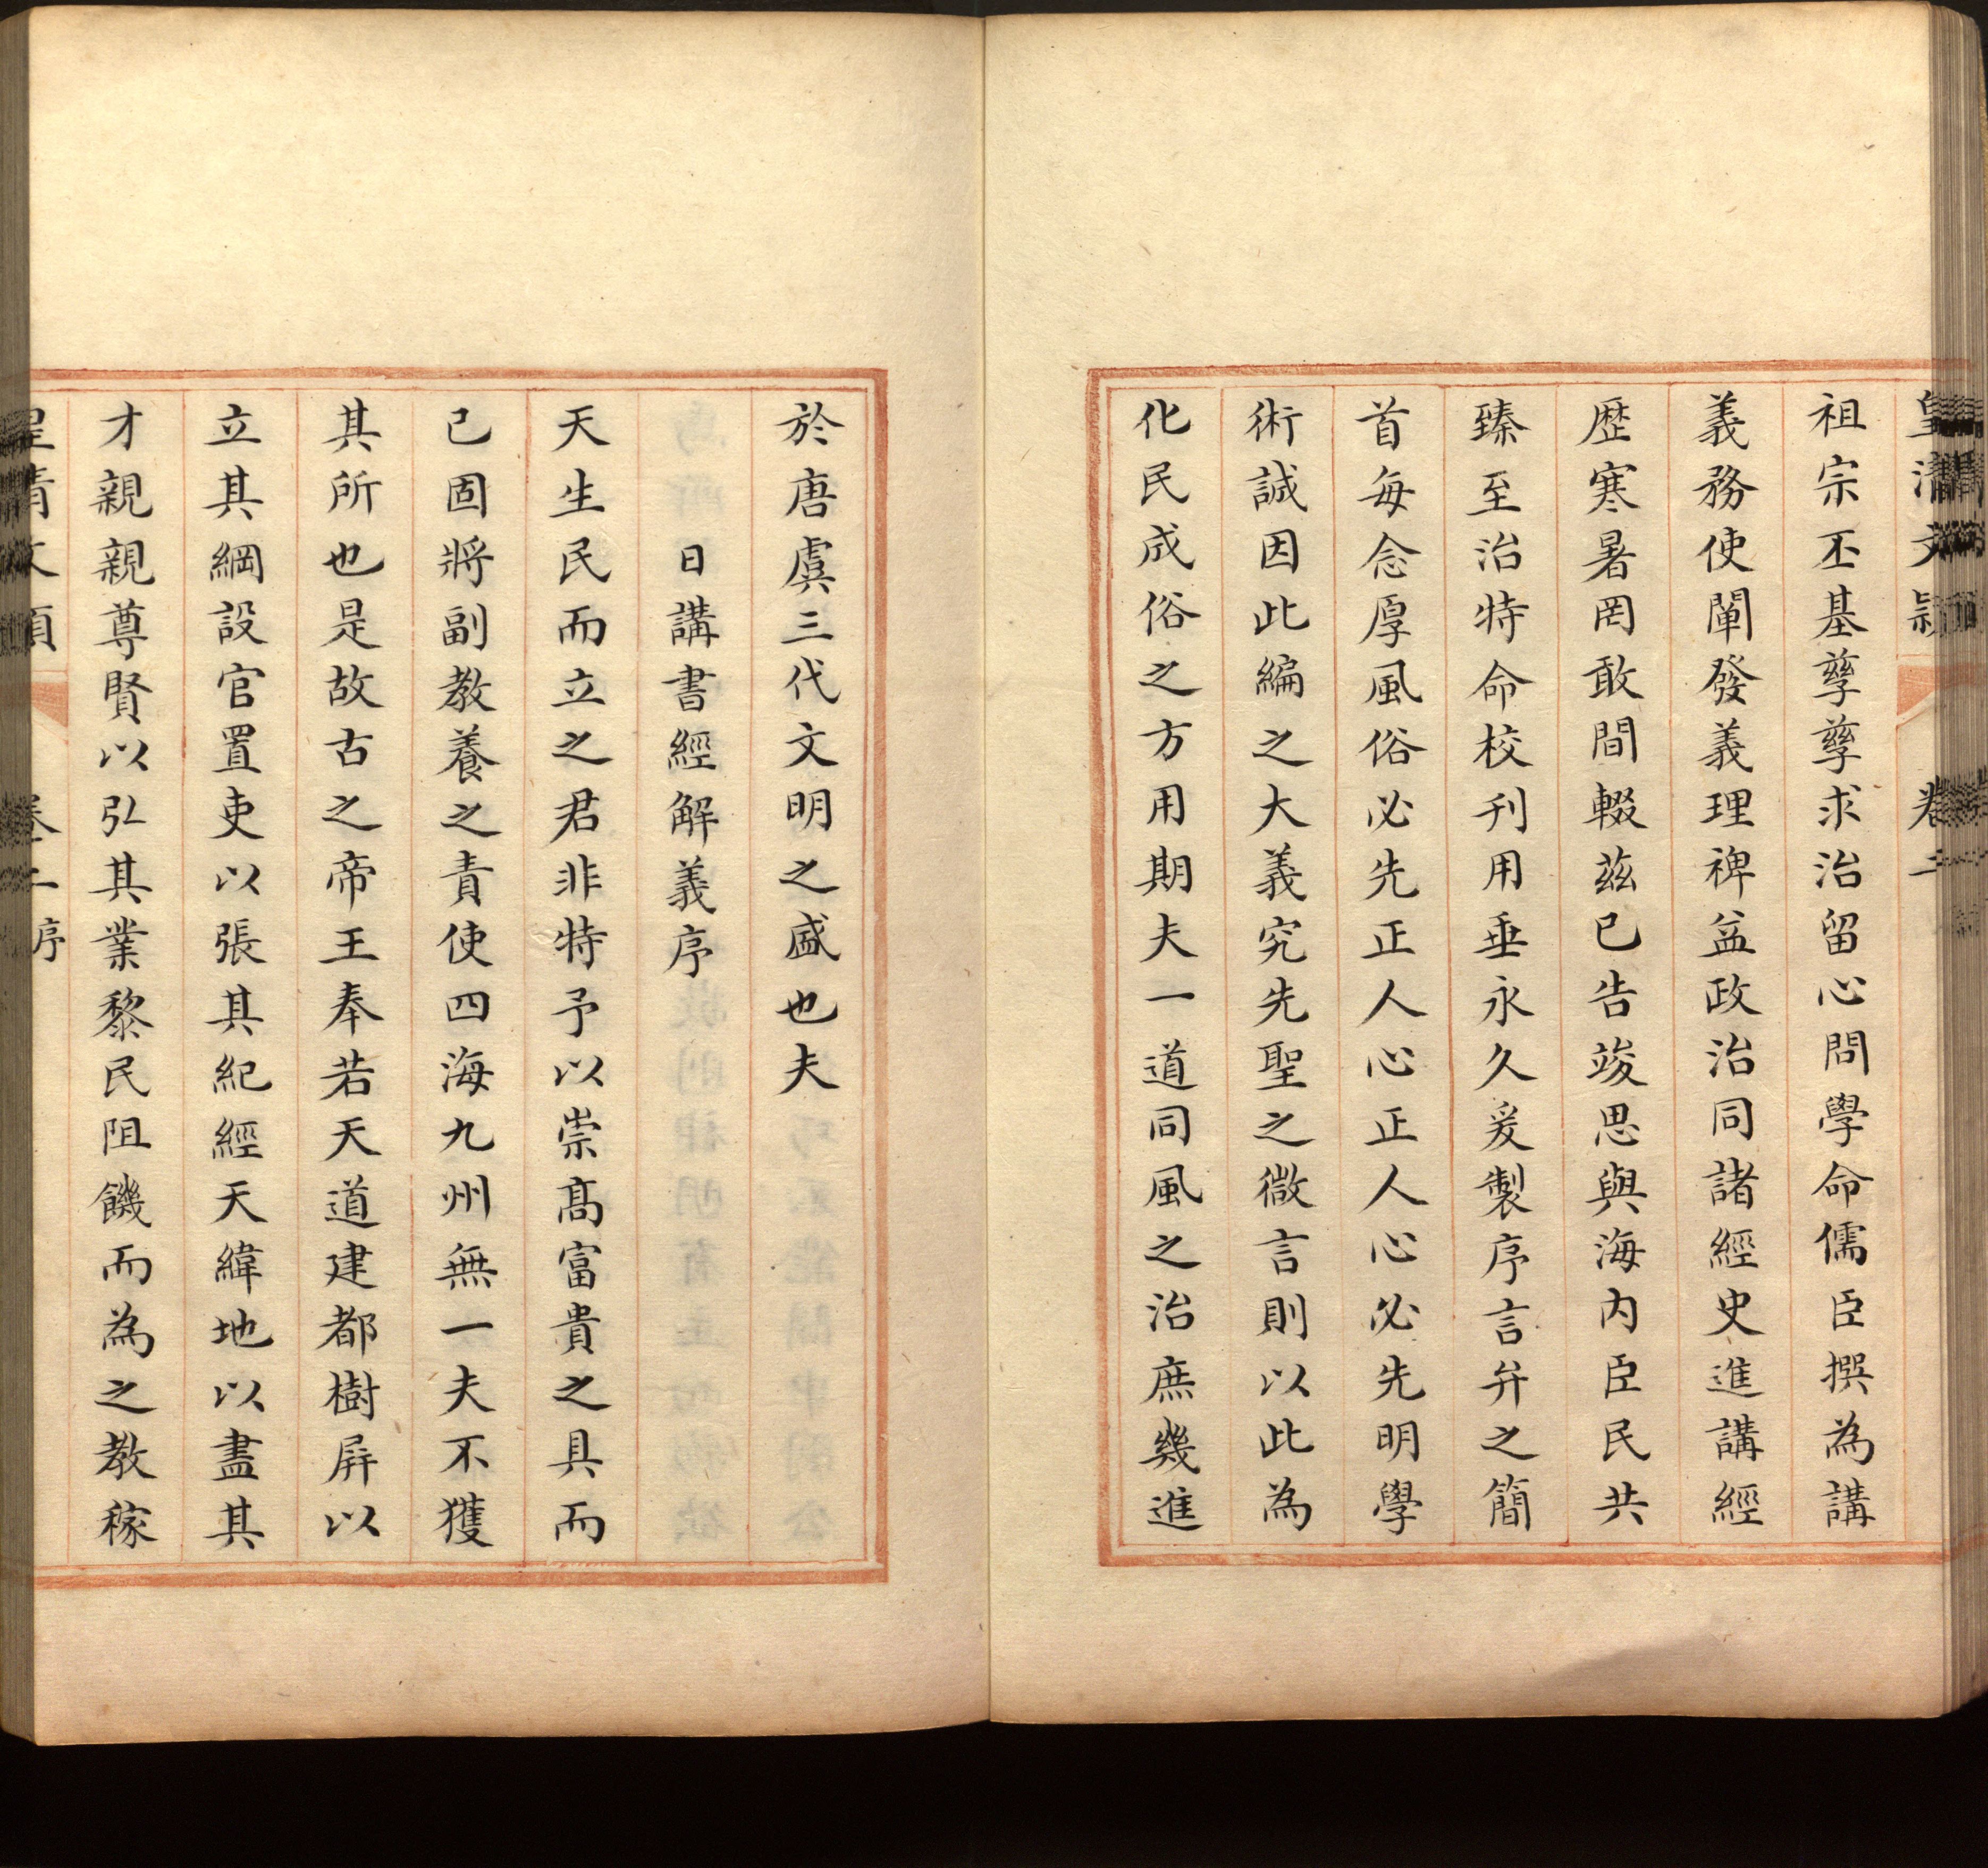 皇清文穎 卷二
祖宗丕基孳孳求治留心問學命儒臣撰為講
義務使闡發義理裨益政治同諸經史進講經
歷寒暑罔敢間輟茲已告竣思與海內臣民共
臻至治特命校刊用垂永久爰製序言弁之簡
首每念厚風俗必先正人心正人心必先明學
術誠因此編之大義究先聖之微言則以此為
化民成俗之方用期夫一道同風之治庶幾進
於唐虞三代文明之盛也夫
日講書經解義序
天生民而立之君非特予以崇髙富貴之具而
已固將副教養之責使四海九州無一夫不獲
其所也是故古之帝王奉若天道建都樹屏以
立其綱設官置吏以張其紀經天緯地以盡其
才親親尊賢以弘其業黎民阻饑而為之教稼
皇清文穎 卷二序